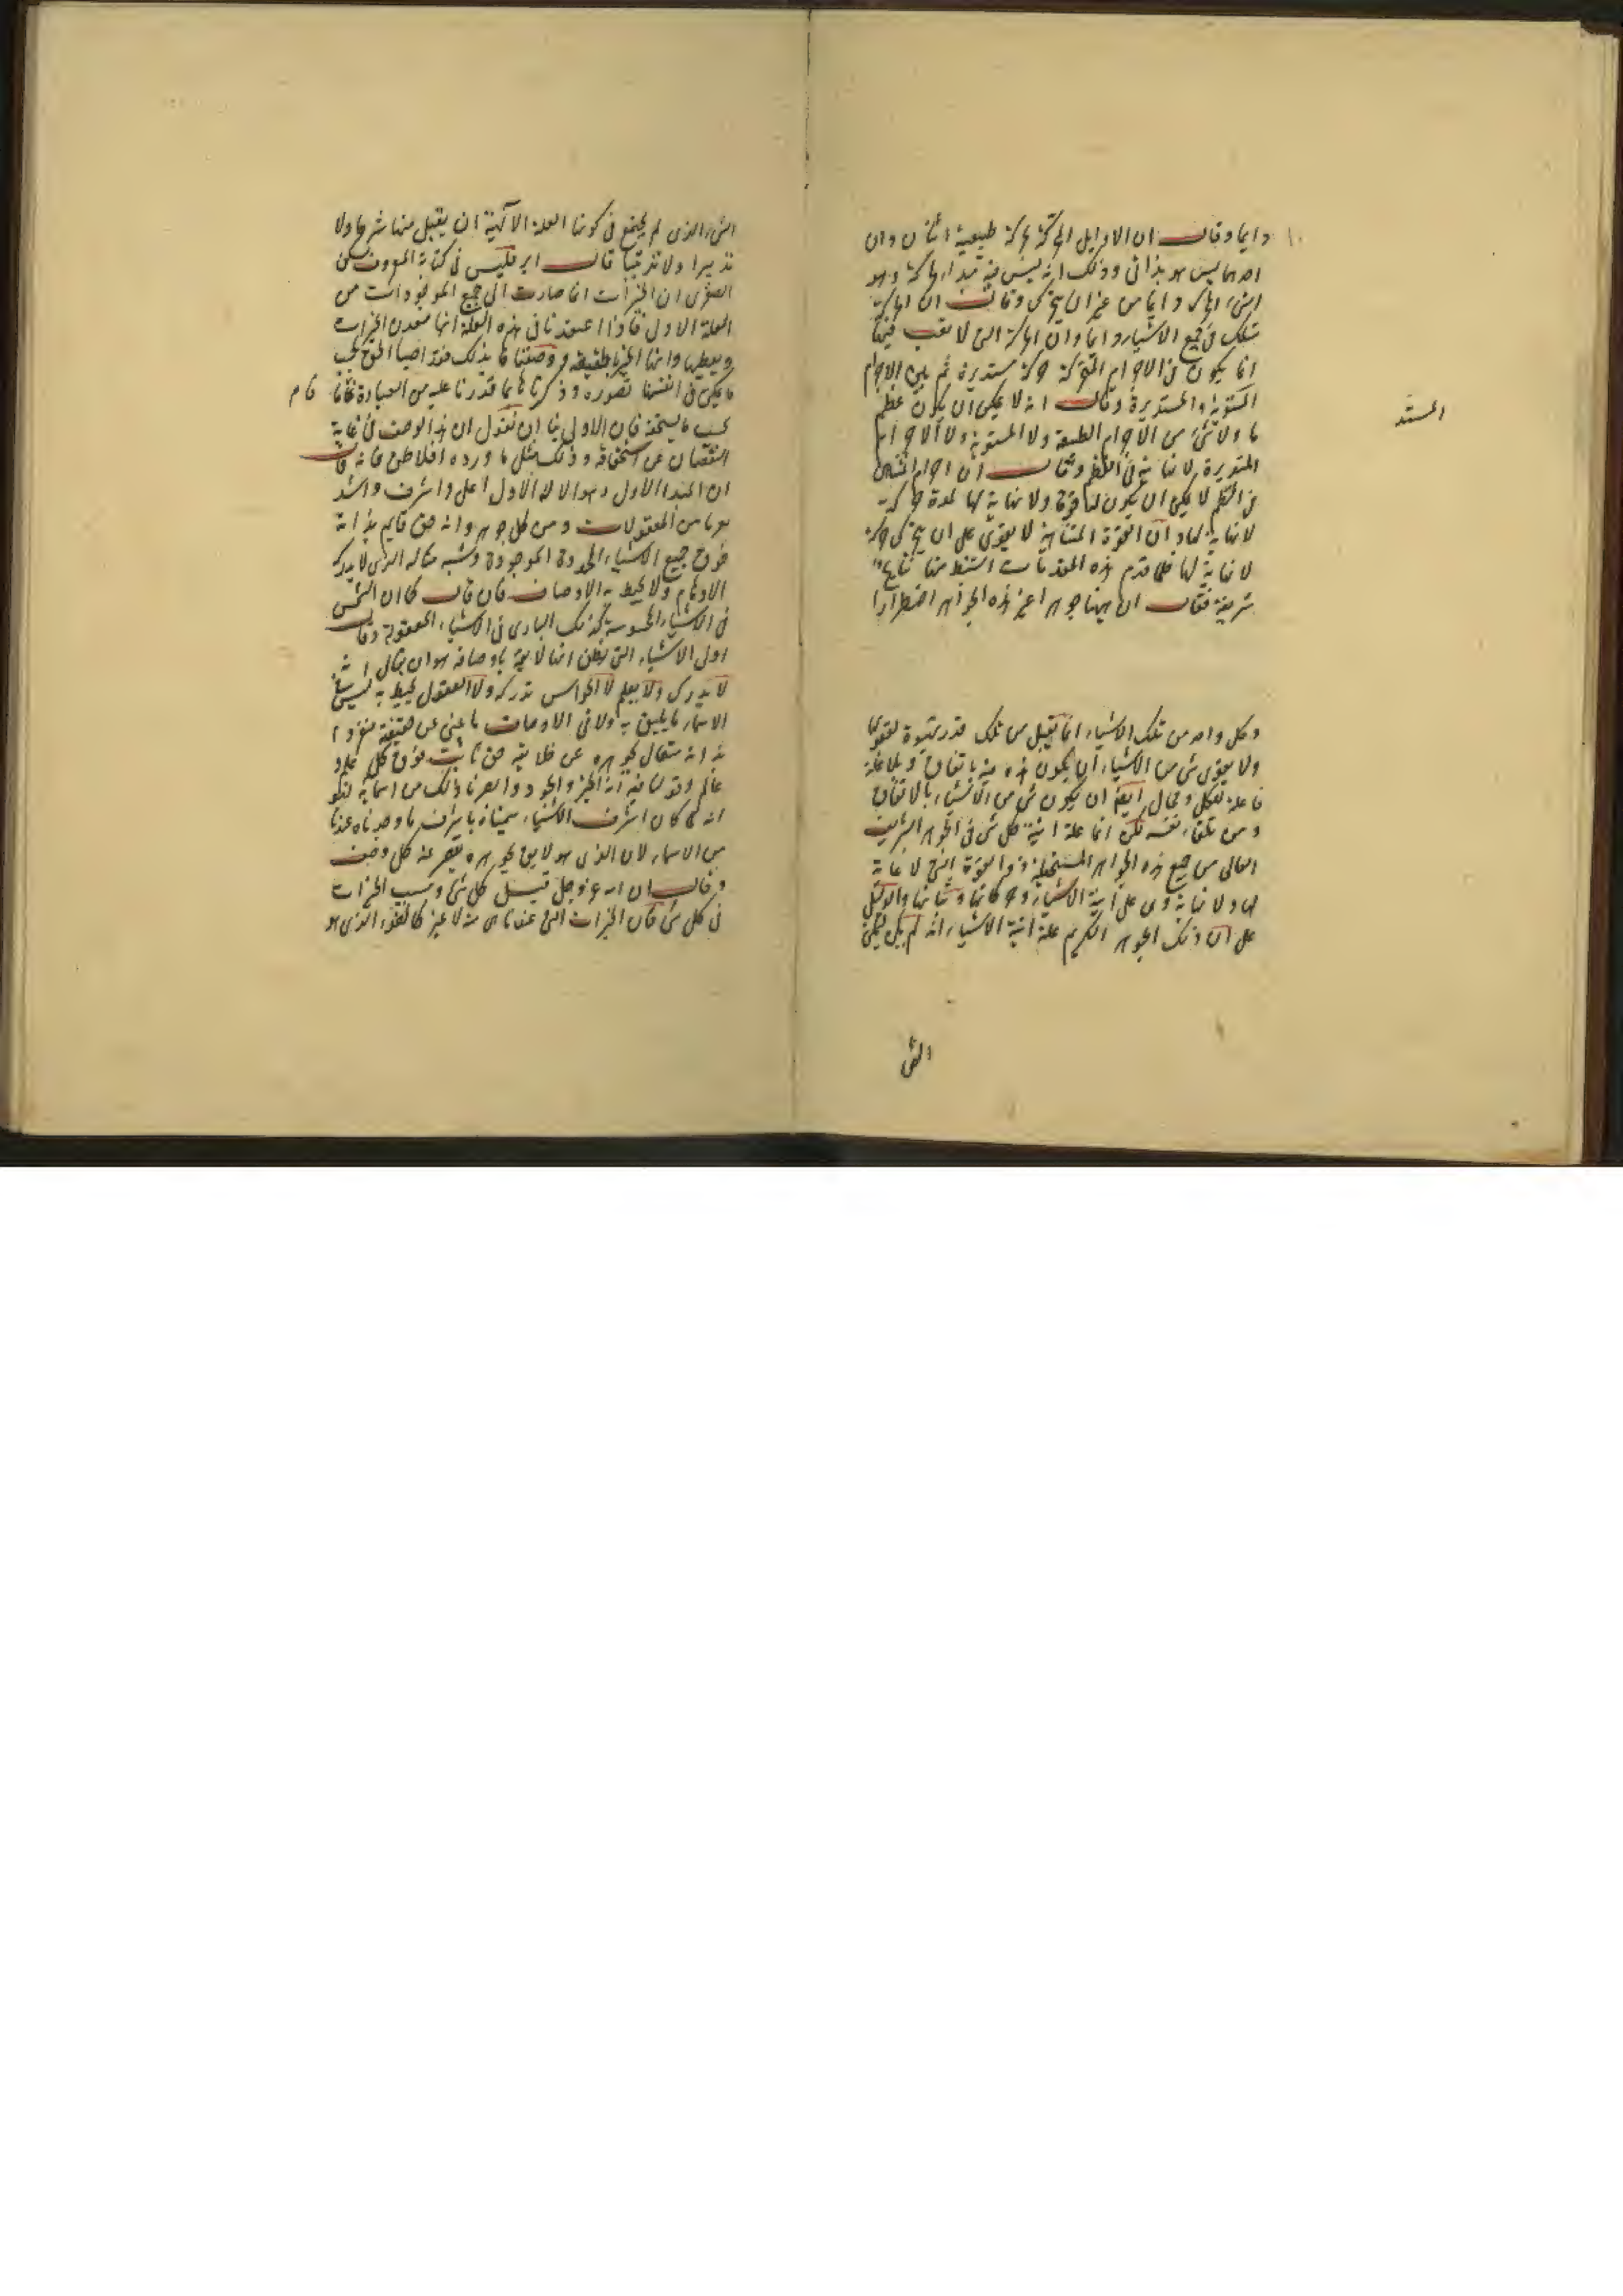 دايما وقال ان الاوايل المحركة حركة طبيعية اثنان وان
احدهما ليس هو بذاتى وذلك انه ليس فيه مبدا الحركة وهو
الشىء المحرك دايما من غير ان يتحرك وقال ان الحركة
تسلك فى جميع الاشياء دايما وان الحركة التى لا تعب فيها
انما يكون فى الاجرام المتحركة حركة مستديرة ثم بين الاجرام
المستوية والمستديرة وقال انه لا يمكن ان يكون عظم
ما ولا شىء من الاجرام الطبيعة ولا المستوية ولا الاجرام
المستديرة لا نهاية فى العظم وقال ان اجرام المتناهى
فى العظم لا يمكن ان يكون لها قوة ولا نهاية لها لمدة حركة
لا نهاية لها وان القوة المتناهية لا يقوى على ان يتحرك حركة
لا نهاية لها فلما قدم هذه المقدمات استنبط منها نتايج
شريفة فقال ان ههنا جوهرا غير هذه الجواهر اضطرارا
المستد
وكل واحد من تلك الاشياء انما يقبل من تلك قدر قوة تقويها
ولا يقوى شىء من الاشياء ان يكون هذه منه باتفاق وبلا علة
فاعلة لكل ومحال ايضا ان يكون شىء من الاشياء بالاتفاق
ومن تلقاء نفسه لكن انما علة انية كل شىء فى الجوهر الشريف
العالى من جميع هذه الجواهر المستحيلة ذو القوة التى لا غاية
لها ولا نهاية وهى على انية الاشياء وحركاتها وثباتها والدليل
على ان ذلك الجوهر الكريم علة انية الاشياء انه لم يكن يمكن
الشى
الشىء الذى لم يجتمع فى كونها العلة الالهية ان يقبل منها شرحا ولا
تدبيرا ولا ترتيبا قال ابرقليس فى كتابه المعروف
الصغرى ان الخيرات انما صارت الى جميع الموجودات من
العلة الاول فاذا اعتقدنا فى هذه العلة انها معدن الخيرات
ويعطيها وانها الخير بالحقيقة ووصفناها بذلك فقد اصبنا الحق بحسب
ما يمكن فى انفسنا تصوره وذكرناها بما قدرنا عليه من العبادة فاما
فام
بحسب ما يستحقه فان الاولى بنا ان نقول ان هذا الوصف فى غاية
النقصان عن استحقاقه وذلك مثل ما اورده افلاطن فانه قال
ان المبدا الاول وهو الاله الاول اعلى واشرف واشد
من المعقولات ومن كل جوهر وانه حق قايم بذاته
فوق جميع الاشياء المحدودة الموجودة وشبه مثاله الذى لا يدركه
الاوهام ولا يحيط به الاوصاف فان قال كما ان الشمس
فى الاشياء المحسوسة كذلك البارى فى الاشياء المعقولة وقال
اول الاشياء التى يظن انها لايقة باوصافه هو ان يقال انه
لا يدرك ولا يعلم لا الحواس تدركه ولا العقول يحيط به ليس فى
الاسماء ما يليق به ولا فى الاوصاف ما يبنى عن حقيقة منفردا
بذاته متعال بجوهره عن خلايقه حق ثابت فوق كل علم و
عالم وقولنا فيه انه الخير والجود والعز وما ذلك من اسمايه لنحو
انه لما كان اشرف الاشياء سميناه باشرف ما وجدناه عندنا
من الاسماء لان الذى هو لايق بجوهره يقصر عنه كل وصف
وقال ان الله عز وجل قبل كل شىء وسبب الخيرات
فى كل شىء فان الخيرات التى عندنا هى منه لا غير كالضوء الذى هو